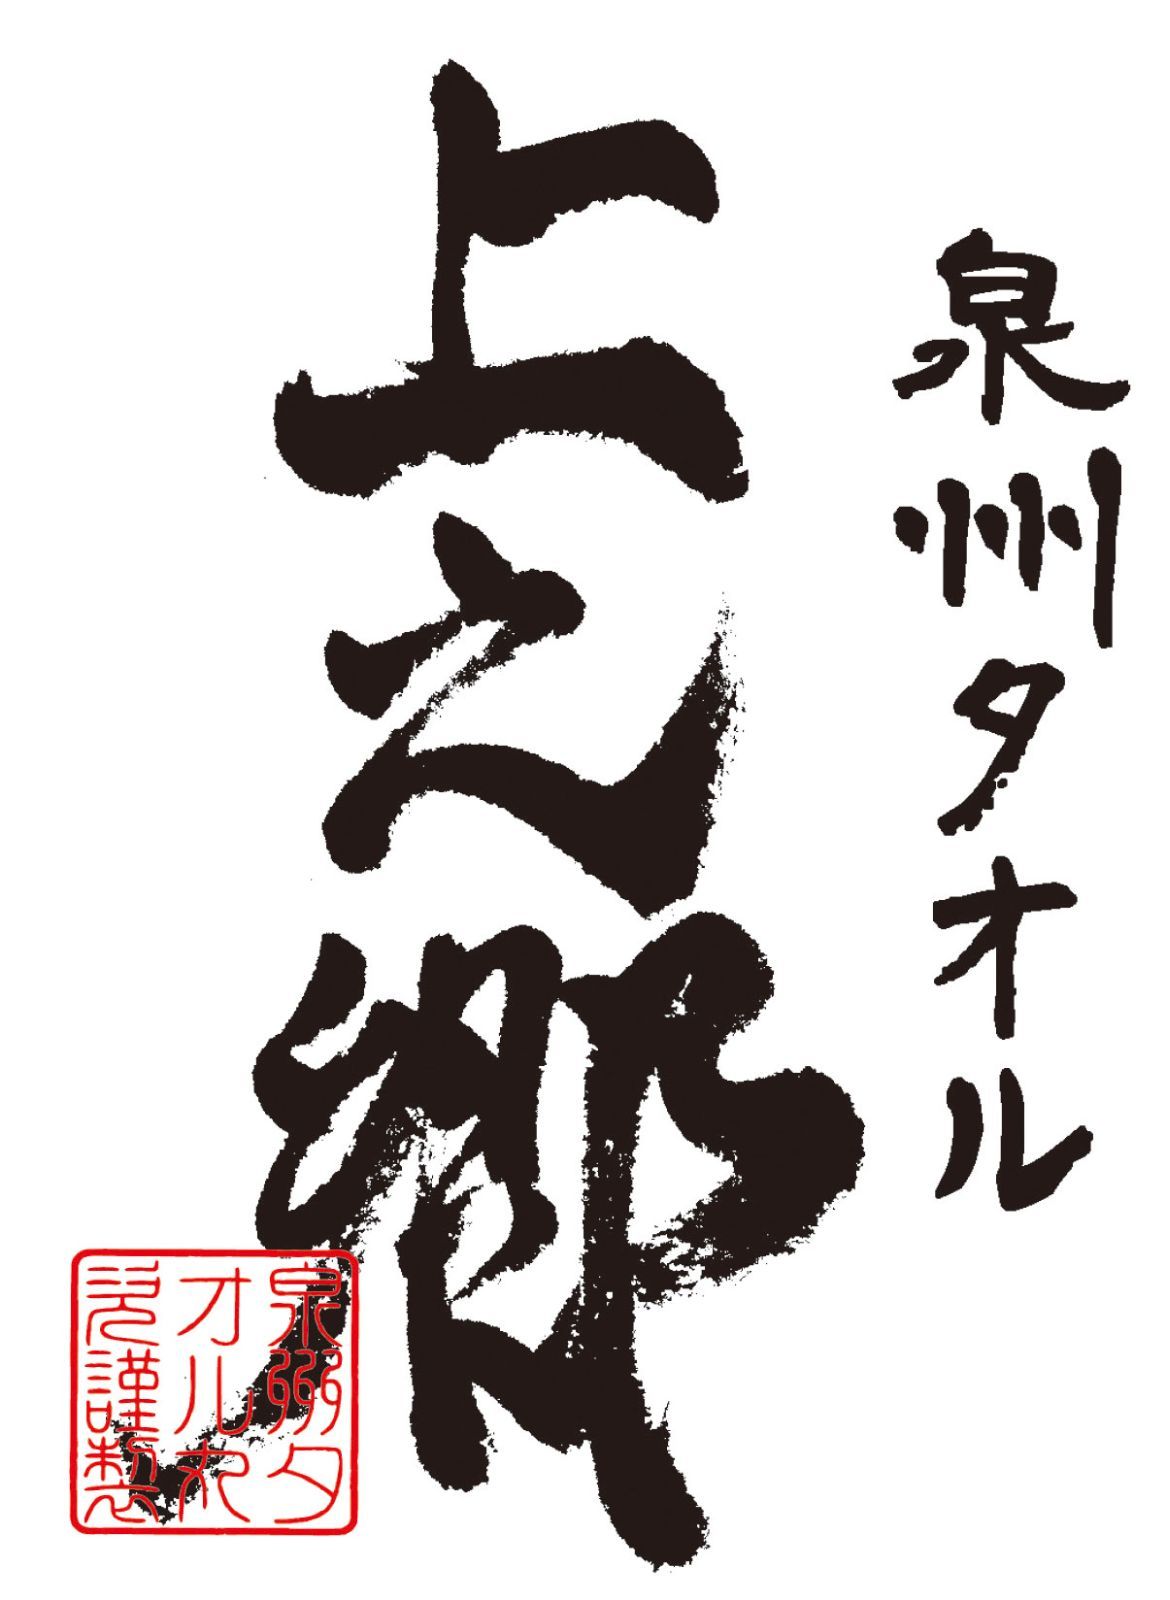 泉州タオル
上之郷
泉州タ
オル
謹製